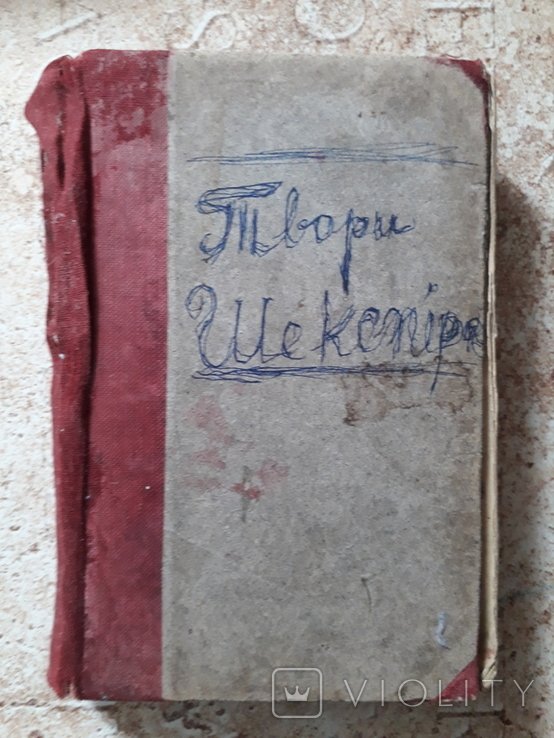 Твори
Шекспіра
VIOLITY